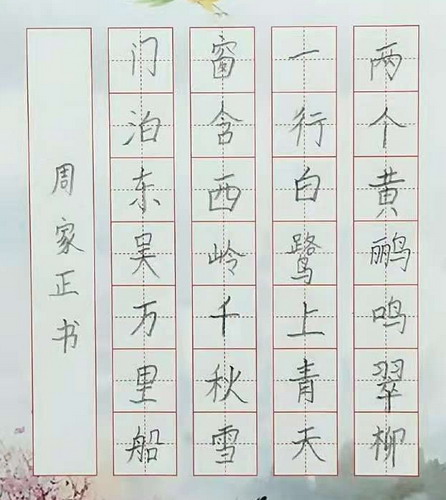 两个黄鹂鸣翠柳
一行白鹭上青天
窗含西岭千秋雪
门泊东吴万里船
周家正书